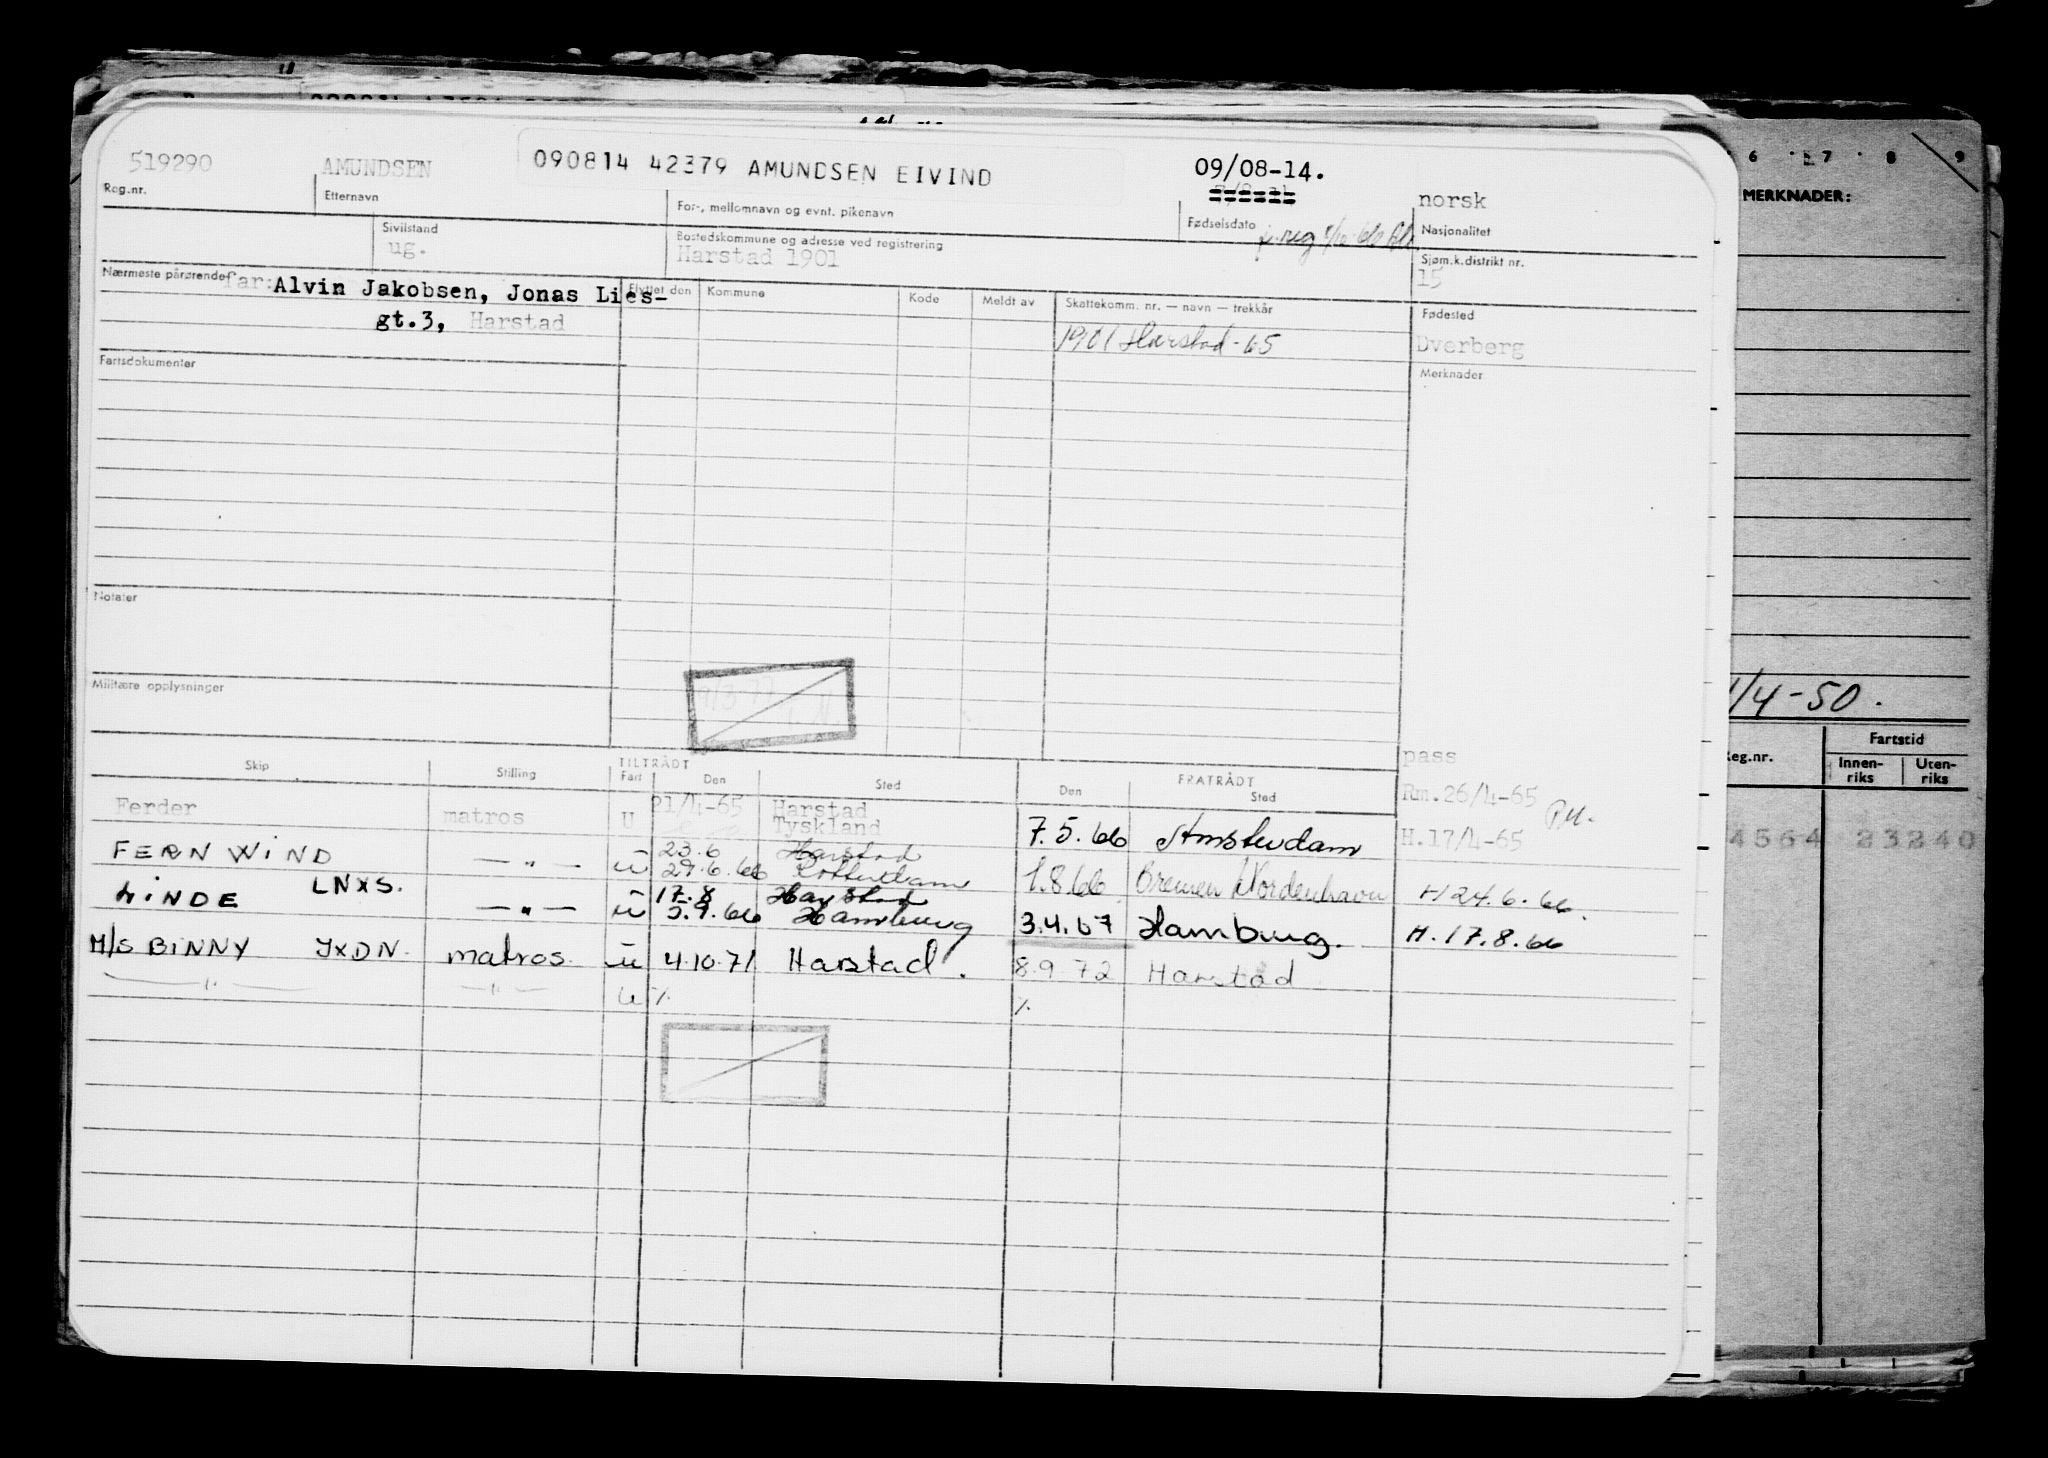 519290 AMUNDSEN 090814 42379 AMUNDSEN EIVIND 09/08-14. norsk
Reg.nr. Etternavn For-, mellomnavn og evnt. pikenavn Fødselsdato Nasjonalitet
Sivilstand Bostedskommune og adresse ved registrering Sjøm.k.distrikt nr.
ug. Harstad 1901 15
Nærmeste pårørende far: Alvin Jakobsen, Jonas Lies-
gt.3, Harstad
Flyttet den Kommune Kode Meldt av Skattekomm. nr. — navn — trekkår Fødested
1901 Harstad-65 Dverberg
Fartsdokumenter Merknader
Notater
Militære opplysninger
pass
Skip Stilling TILTRÅDT Fart Den Sted FRATRÅDT Den Sted
Rm.26/4-65
Ferder matros U 21/4-65 Harstad
Tyskland 7.5.66 Amsterdam H.17/4-65
FERN WIND —"— u 23.6 Harstad
29.6.66 Rotterdam 1.8.66 Bremen Nordenhavn H 24.6.66.
LINDE LNXS. —"— u 17.8 Harstad
5.9.66 Hamburg 3.4.67 Hamburg. H.17.8.66
M/S BINNY JXDN. matros u 4.10.71 Harstad. 8.9.72 Harstad
—"— —"— u ٪ ٪
6 7 8 9
MERKNADER:
1/4-50.
Reg.nr. Fartstid
Innen-riks Uten-riks
4564 23240